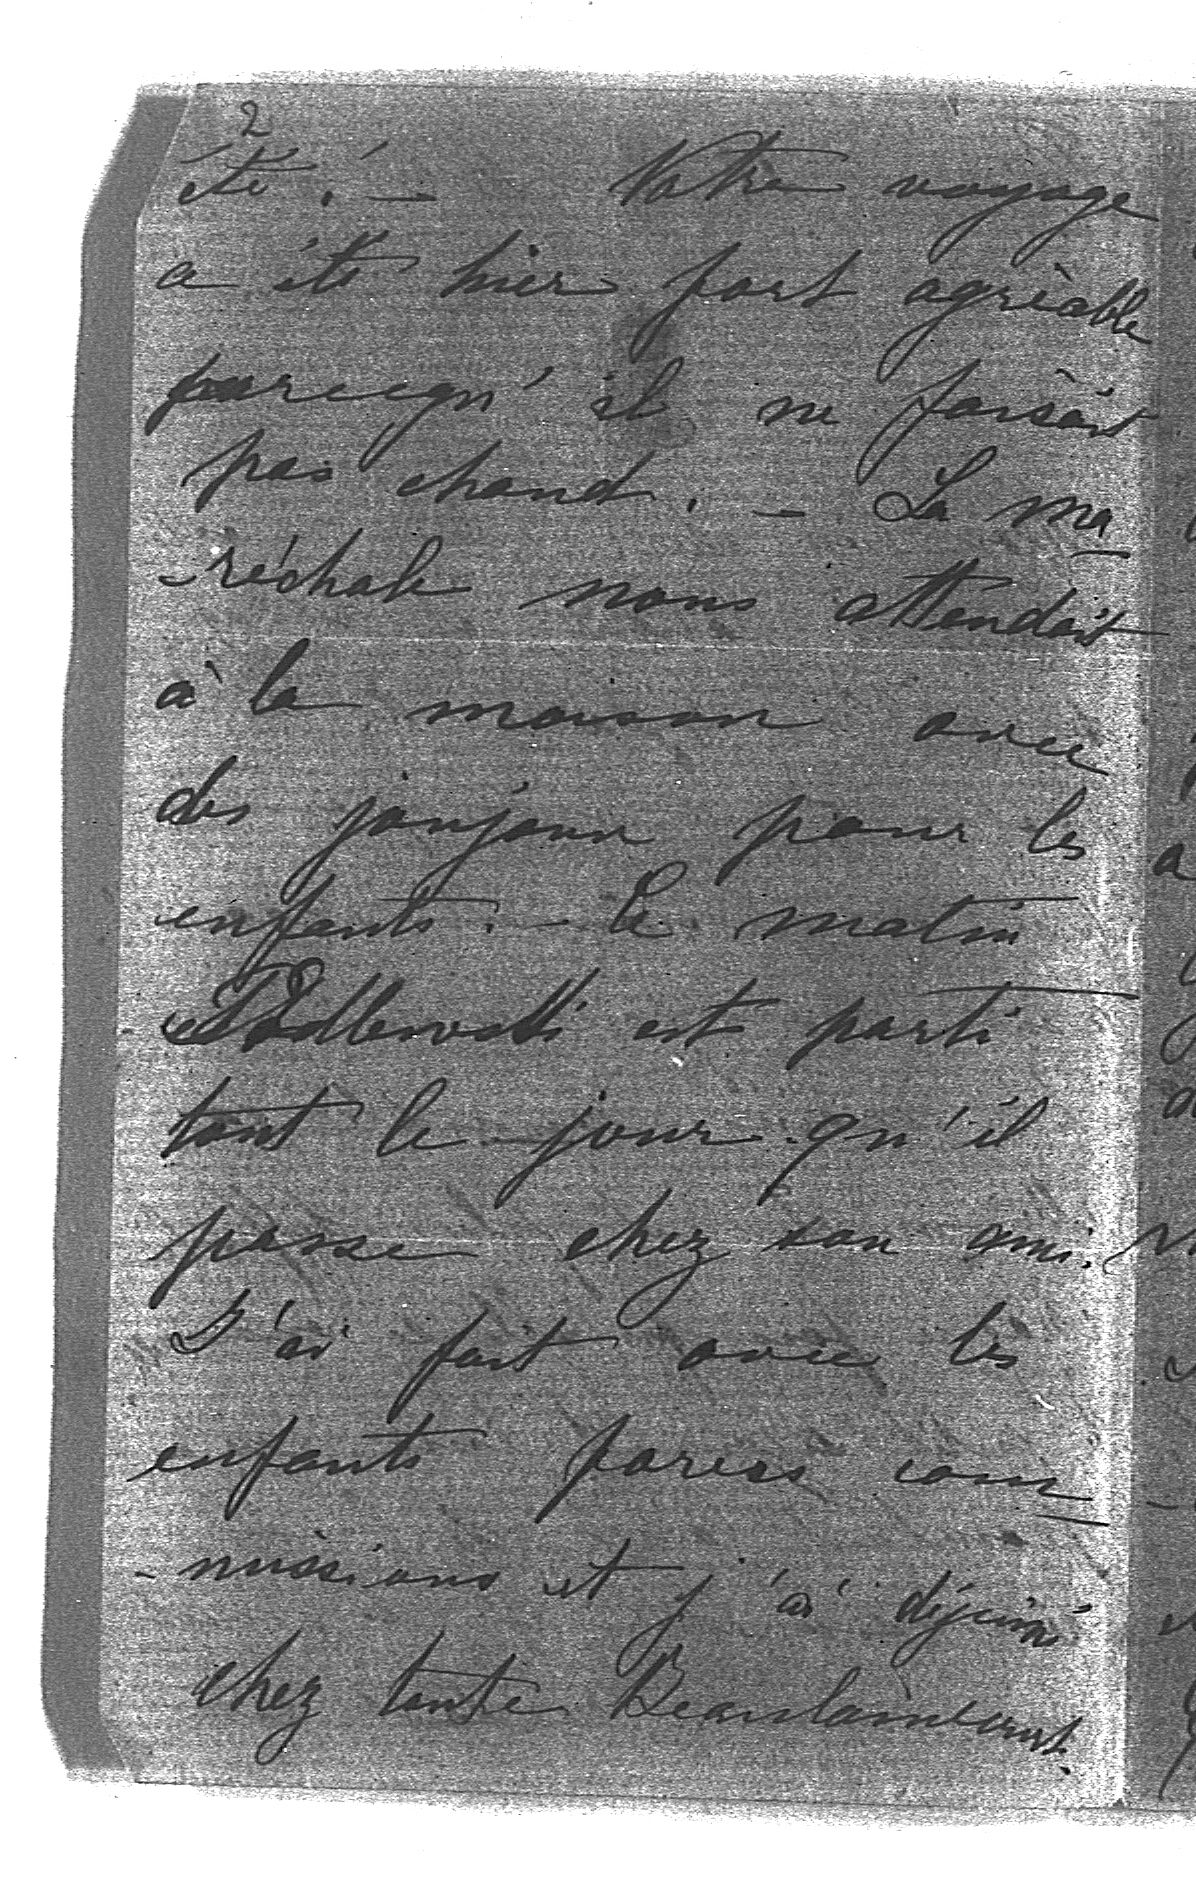 2
été. — Notre voyage
a été hier fort agréable
parcequ'il ne faisait
pas chaud. — La ma
-réchale nous attendait
à la maison avec
des joujoux pour les
enfants. — Le matin
est parti
tout le jour qu'il
passe chez son ami.
J'ai fait avec les
enfants com
-missions et j'ai déjeuné
chez tante Beaulaincourt.